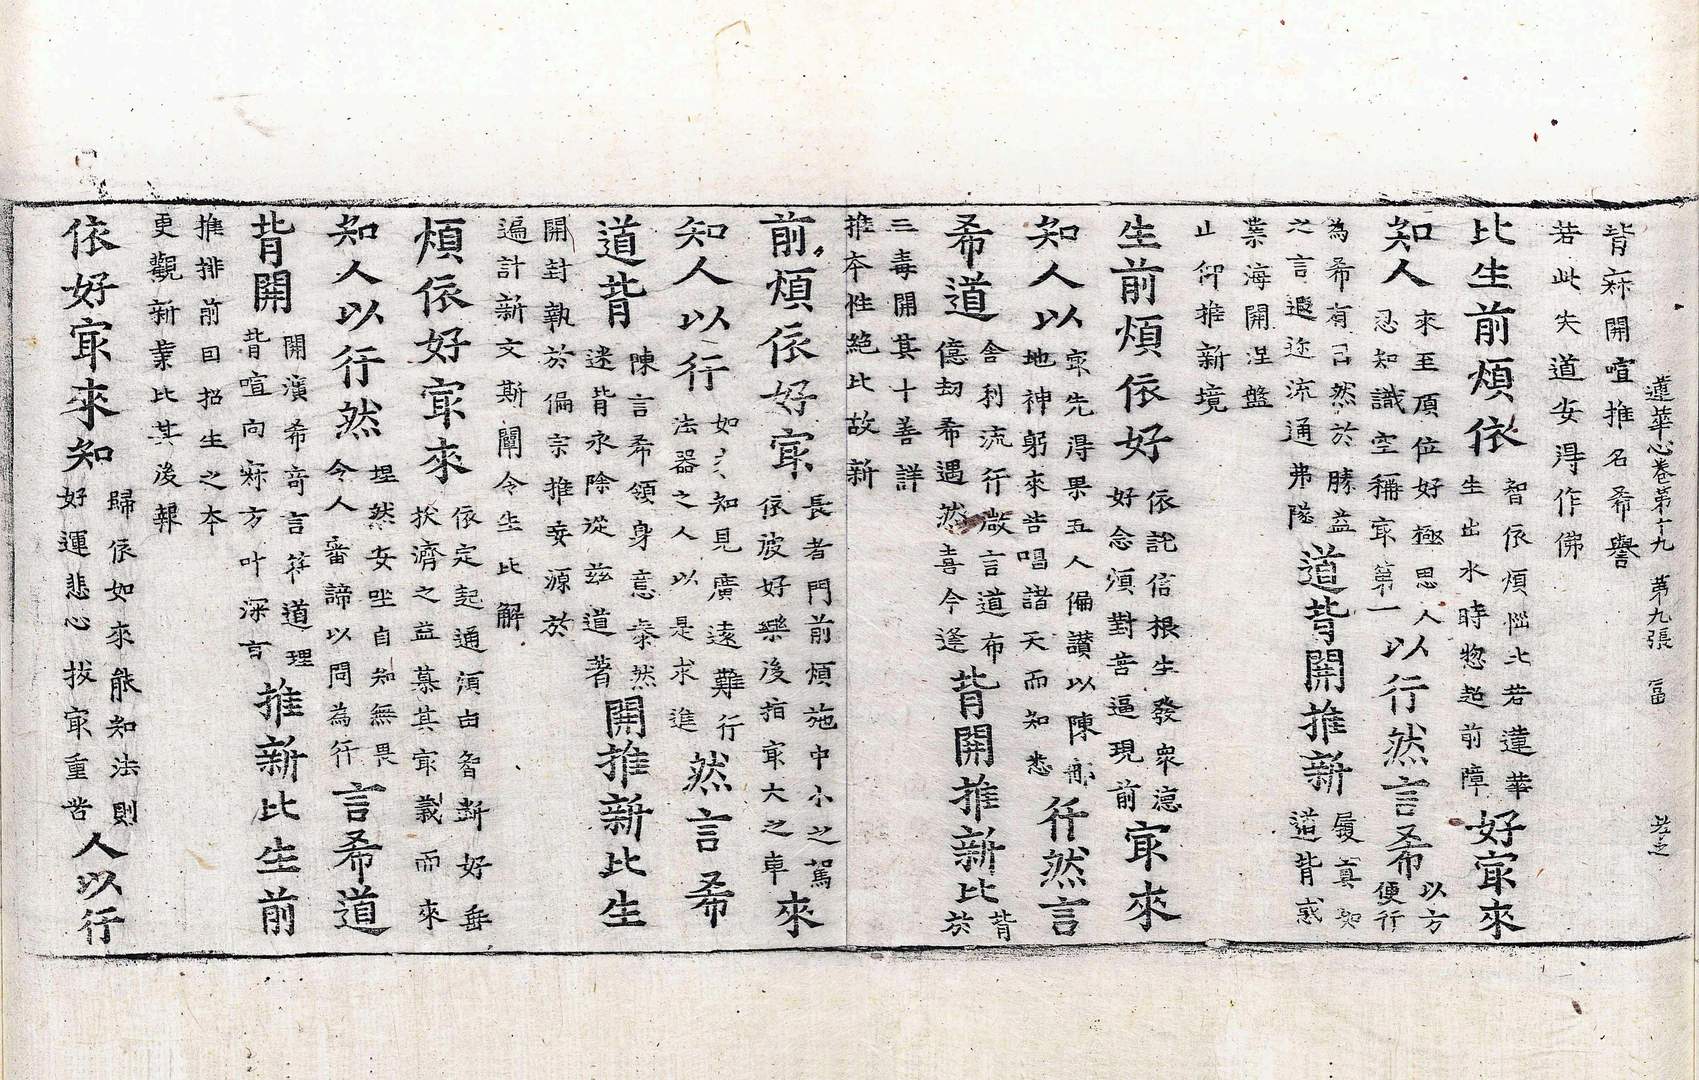 蓮華心卷第十九 第九張 冨
背寂開喧推名希譽
若此失道安得作佛
比生前煩依智依煩惱比若蓮華生出水時惣超前障好㝡來
知人來至頂位好極思人忍知識空稱㝡第一以行然言希以方便行
為希有已然於勝益之言遐迩流通弗墜道背開推新履真知道背惑
業海開涅盤
止仰推新境
生前煩依好依説信根生發衆意好念須對苦逼現前㝡來
知人以㝡先得果五人偏讃以陳地神躬來告唱諸天而知悉行然言
希道舎利流行敬言道布億劫希遇然喜今逢背開推新比背於
三毒開其十善詳
推夲性絶比故新
前煩依好㝡長者門前煩施中小之駕依彼好樂後指㝡大之車來
知人以行如之知見廣遠難行法器之人以是求進然言希
道背陳言希領身意泰然迷背永除從兹道著開推新比生
開封執於偏宗推妄源於
遍計新文斯闡令生比解
煩依好㝡來依定起通須由智断好垂拔濟之益慕其㝡義而來
知人以行然埋然安坐自知無畏令人審諦以問為行言希道
背開開演希奇言符道理背喧向寂方叶深言推新比生前
推排前因招生之夲
更觀新業比其後報
依好㝡來知歸依如來能知法則好運悲心拔㝡重苦人以行